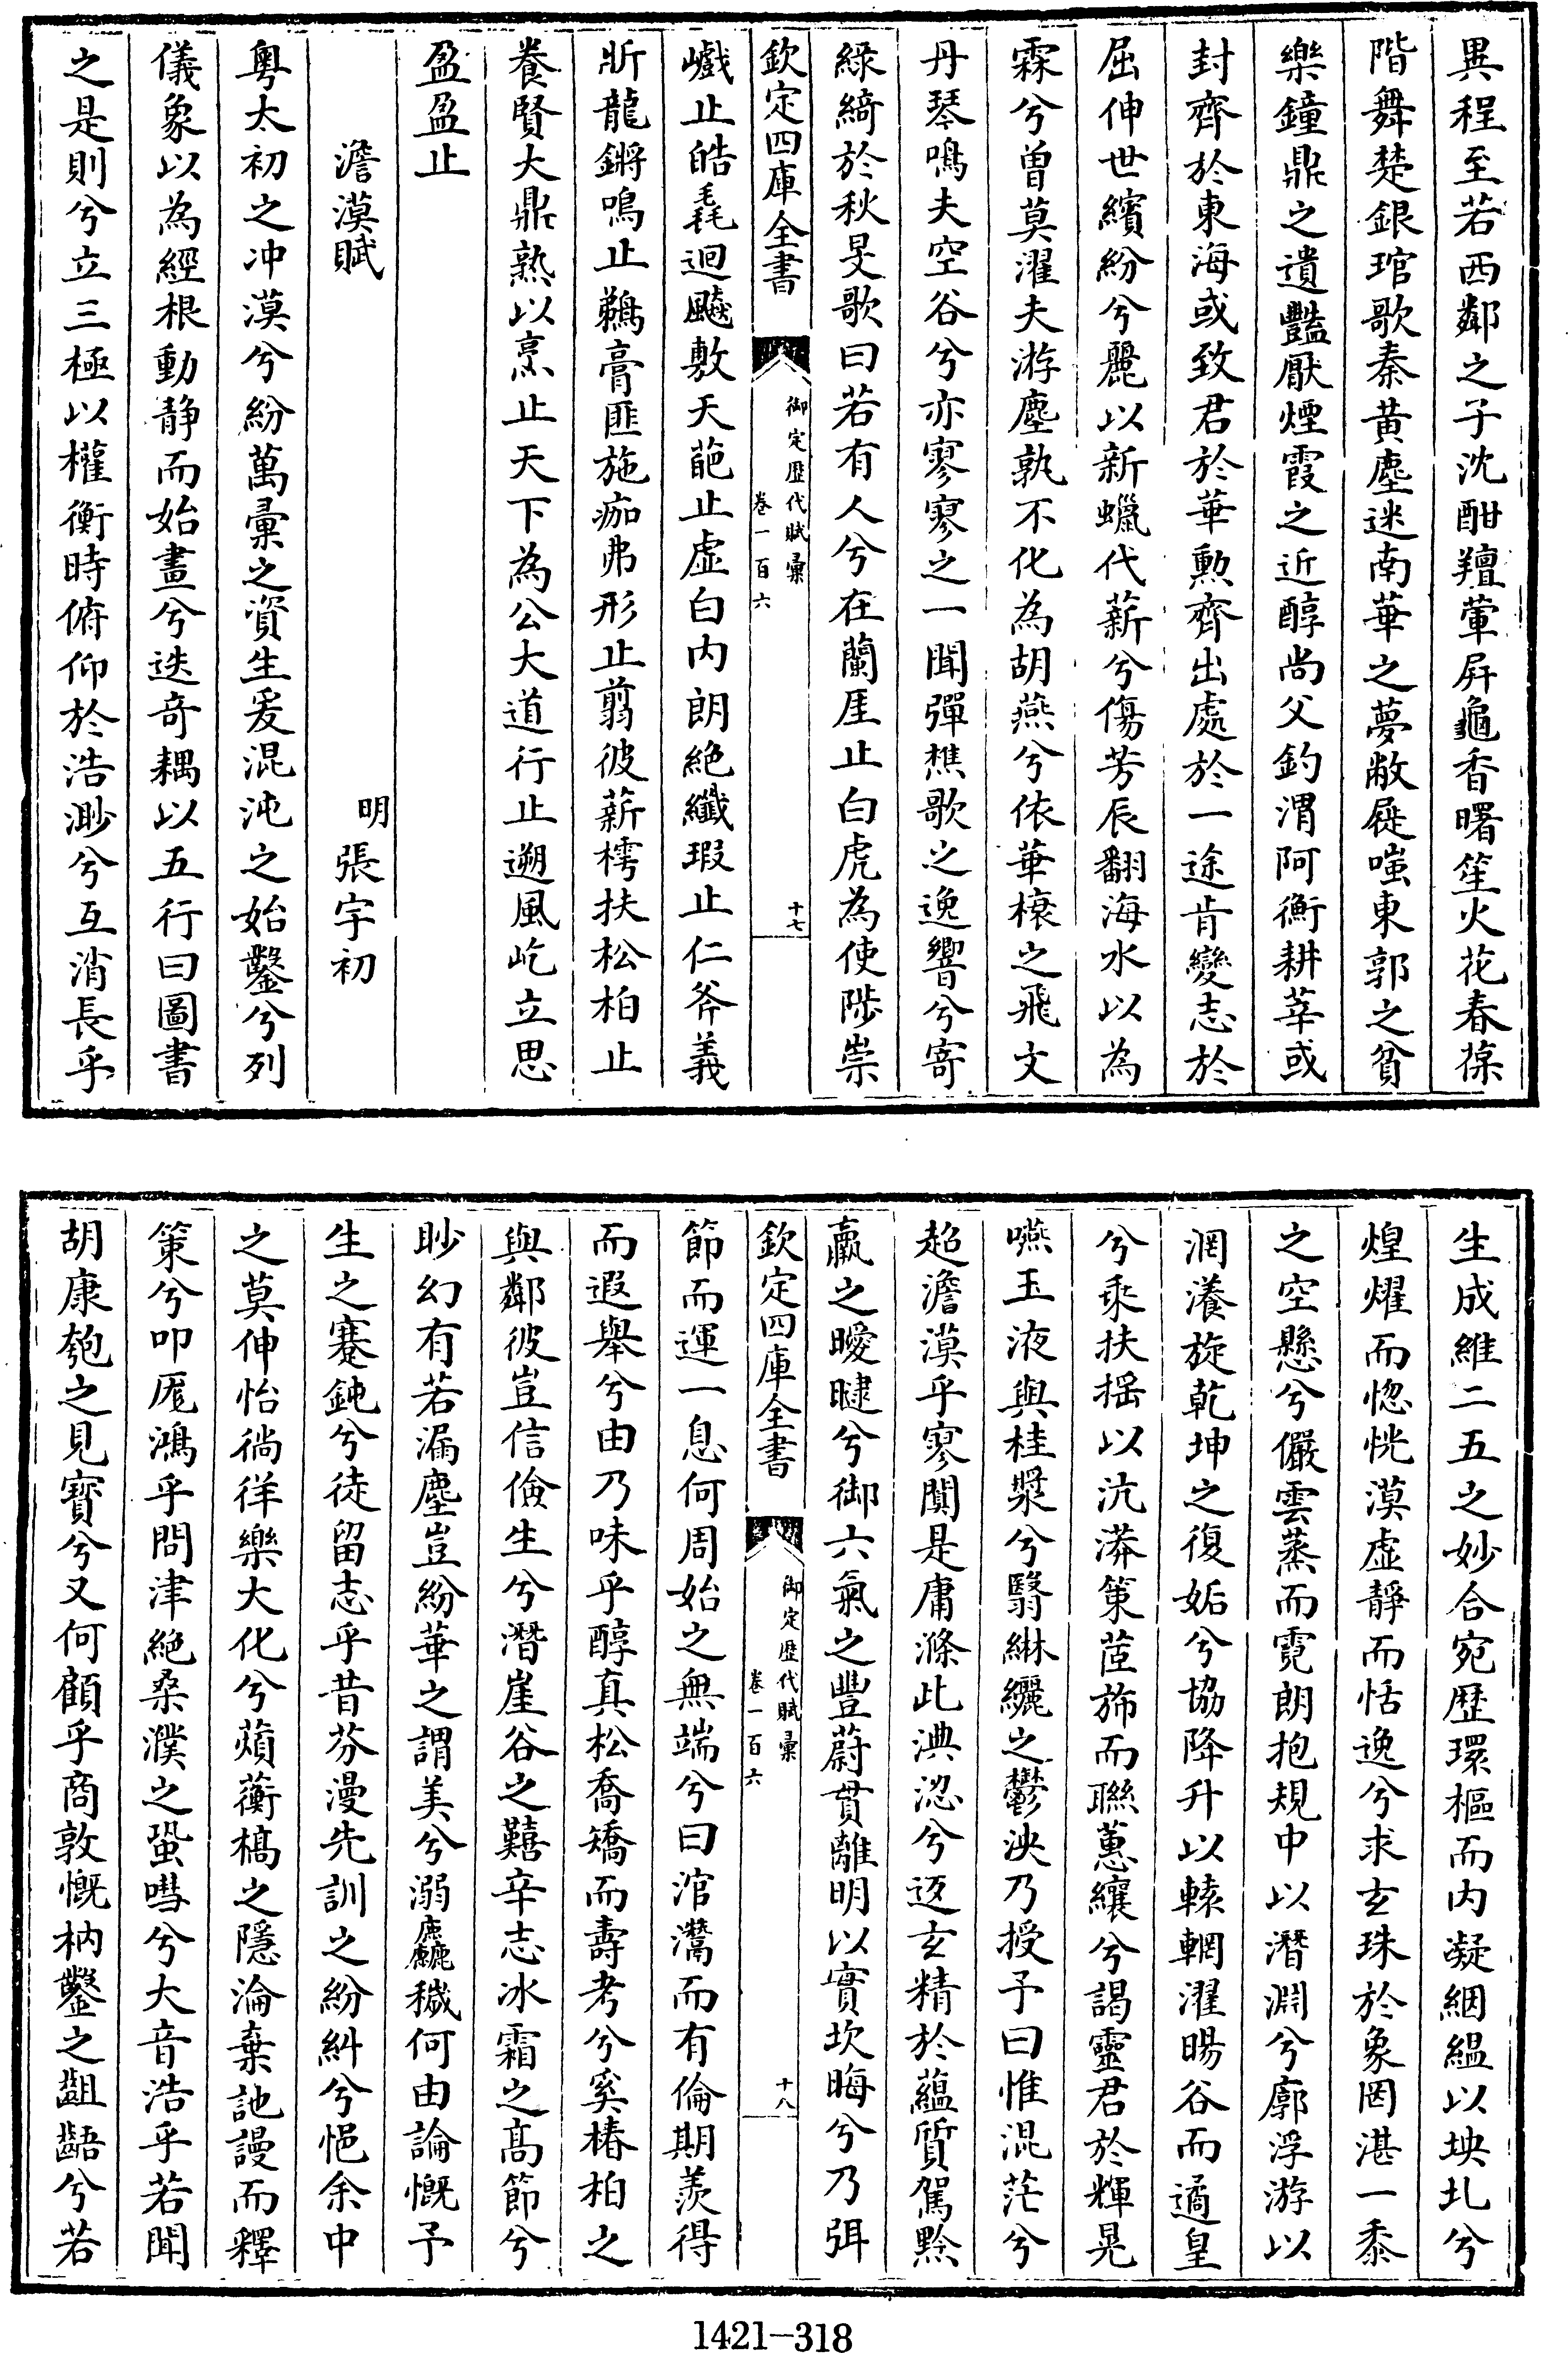 異程至若西鄰之子沈酣羶葷屏龜香曙笙火花春葆
階舞楚銀琯歌秦黄塵迷南華之夢敝屣嗤東郭之貧
樂鐘鼎之遺豔厭煙霞之近醇尚父釣渭阿衡耕莘或
封齊於東海或致君於華勲齊出處於一途肯變志於
屈伸世繽紛兮麗以新蠟代薪兮傷芳辰翻海水以為
霖兮曽莫濯夫游塵孰不化為胡燕兮依華榱之飛文
丹琴鳴夫空谷兮亦寥寥之一聞彈樵歌之逸響兮寄
緑綺於秋旻歌曰若有人兮在蘭厓止白虎為使陟崇
欽定四庫全書
御定歴代賦彚
卷一百六
十七
巇止皓毳迴飈敷天葩止虚白内朗絶纖瑕止仁斧義
斨龍鏘鳴止鵜膏匪施疴弗形止翦彼薪樗扶松柏止
養賢大鼎熟以烹止天下為公大道行止遡風屹立思
盈盈止
澹漠賦
明
張宇初
粤太初之冲漠兮紛萬彙之資生爰混沌之始鑿兮列
儀象以為經根動静而始畫兮迭奇耦以五行曰圖書
之是則兮立三極以權衡時俯仰於浩渺兮互消長乎
生成維二五之妙合宛歴環樞而内凝絪緼以坱圠兮
煌燿而惚恍漠虚靜而恬逸兮求玄珠於象罔湛一黍
之空懸兮儼雲蒸而霓朗抱規中以潛淵兮廓浮游以
溷瀁旋乾坤之復姤兮協降升以轅輞濯暘谷而遹皇
兮乘扶揺以沆漭策茝斾而聯蕙纕兮謁靈君於輝晃
嚥玉液與桂漿兮翳綝纚之鬱泱乃授予曰惟混茫兮
超澹漠乎寥闃是庸滌此淟涊兮迓玄精於蘊質駕黔
羸之曖曃兮御六氣之豐蔚貫離明以實坎晦兮乃弭
欽定四庫全書
御定歴代賦彚
卷一百六
十八
節而運一息何周始之無端兮曰涫灊而有倫期羨得
而遐舉兮由乃味乎醇真松喬矯而壽考兮奚椿柏之
與鄰彼豈信儉生兮潛崖谷之囏辛志冰霜之髙節兮
眇幻有若漏塵豈紛華之謂美兮溺麤穢何由論慨予
生之蹇鈍兮徒留志乎昔芬漫先訓之紛糾兮悒余中
之莫伸怡徜徉樂大化兮蘋蘅槁之隱淪棄訑謾而釋
策兮叩厖鴻乎問津絶桑濮之蛩嘒兮大音浩乎若聞
胡康匏之見寳兮又何顧乎商敦慨枘鑿之齟齬兮若
1421-318